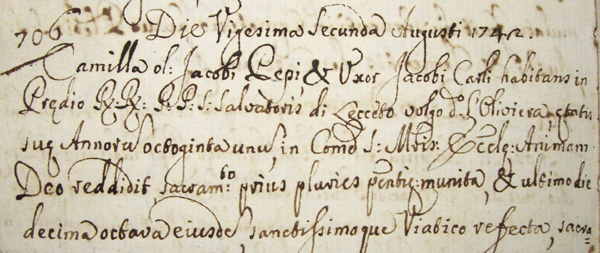 706 Die Vigesima Secunda Augusti 1742.
Camilla ol: Jacobi Pepi & Uxor Jacobi Carli habitans in
Predio R.R: P.P: S: Salvatoris di Lecceto volgo do. L'Oliviera etatis
suę Annorũ octoginta unũ, in Comẽ S: Mris: Eccle: Animam
Deo reddidit, sacram:to prius pluries pentię: munita, & ultimo die
decima octava eiusdẽ, sanctissimoque Viatico refecta, sacra=